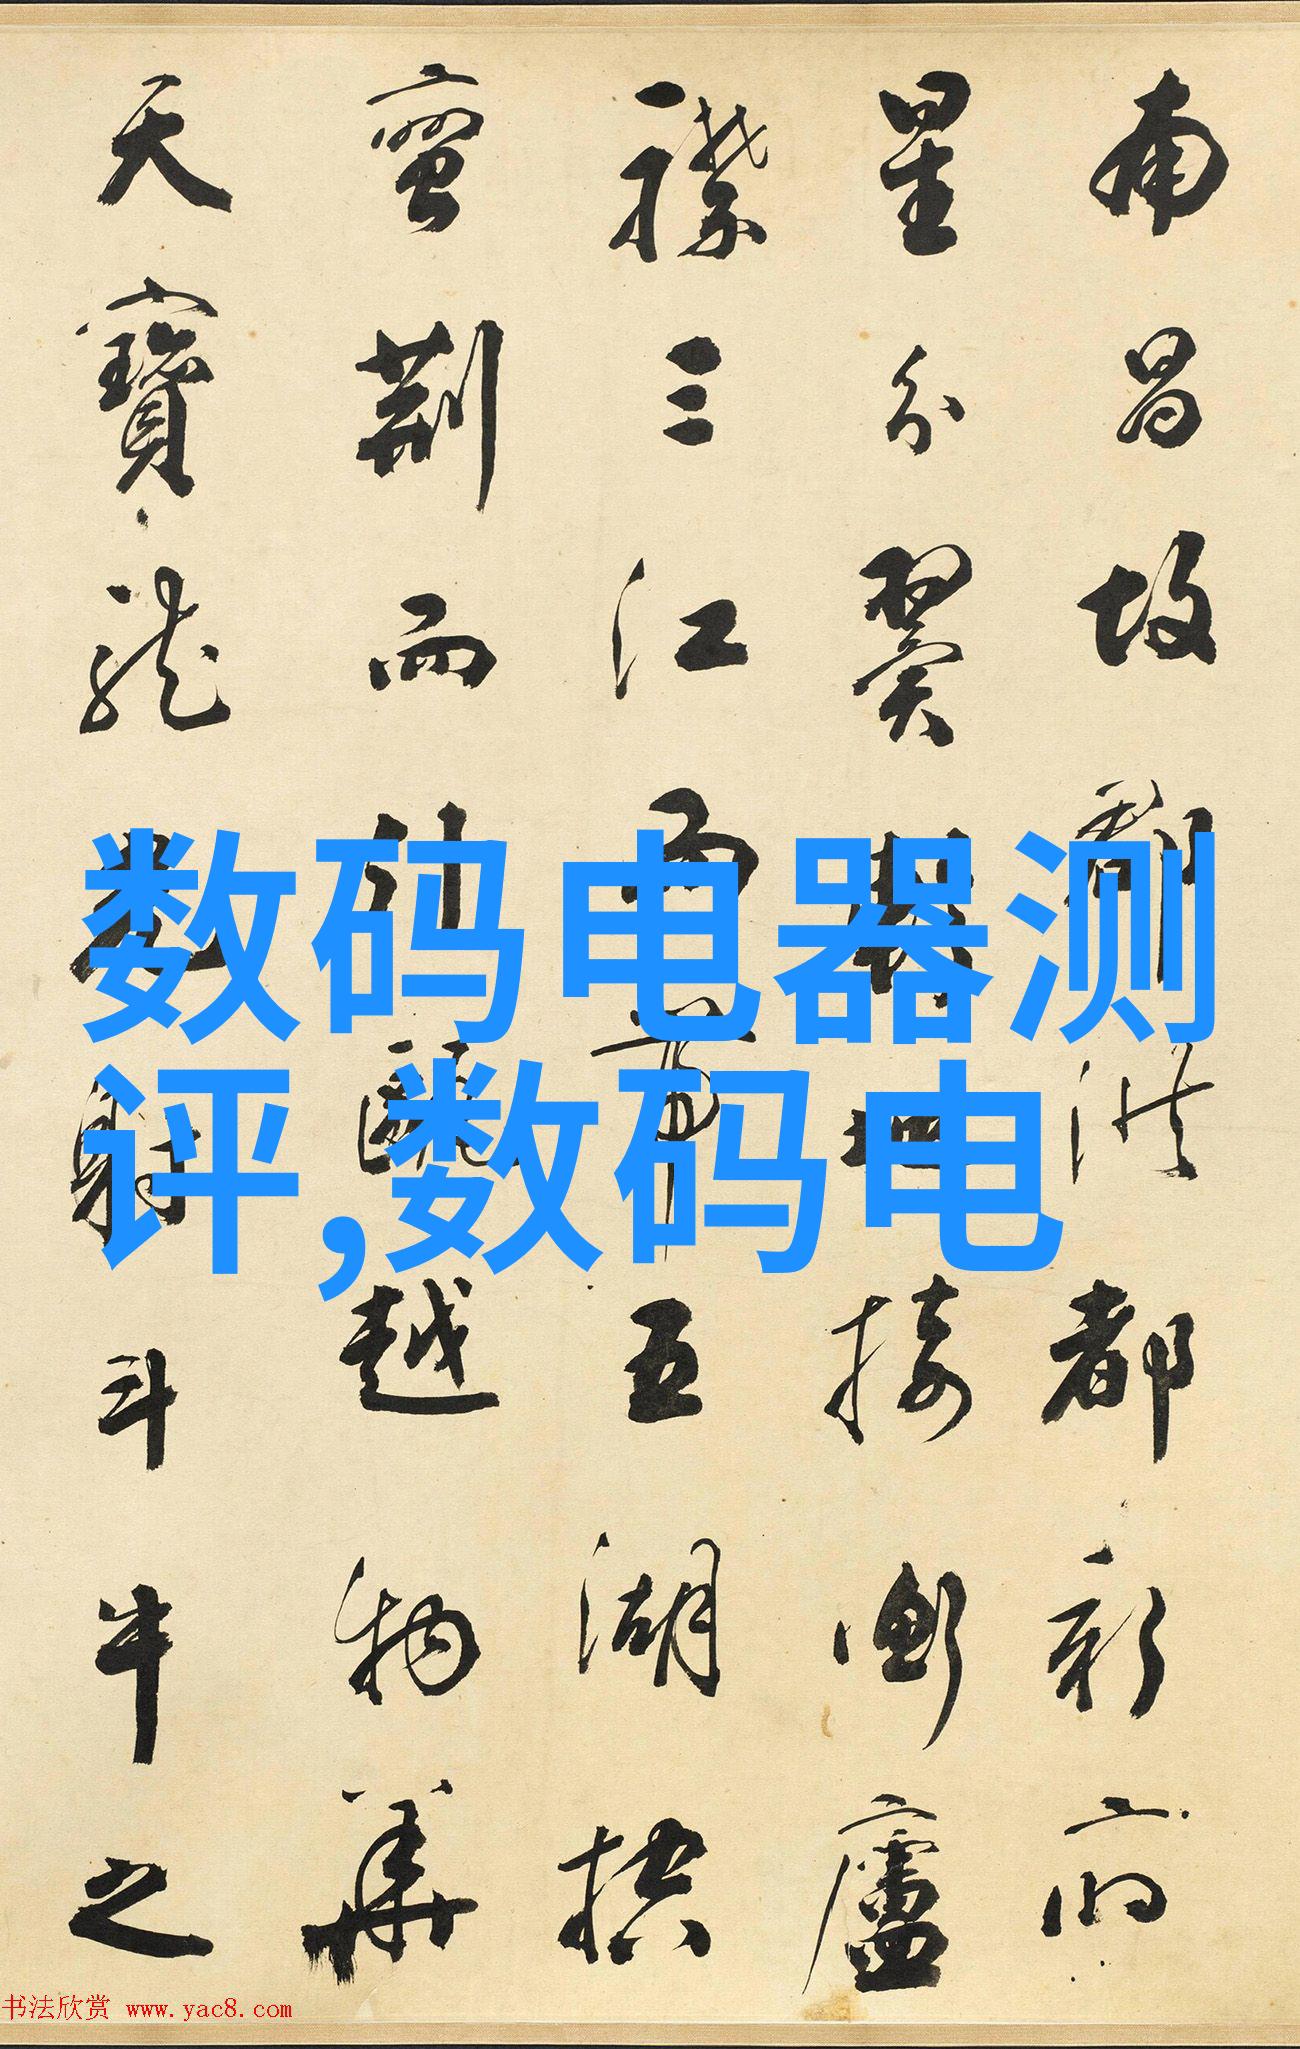 南昌故郡洪都新府
星分翼軫地接衡廬
襟三江而帶五湖控
蠻荊而引甌越物華
天寶龍光射斗牛之
数码电器测
评,数码电
书法欣赏 www.yac8.com